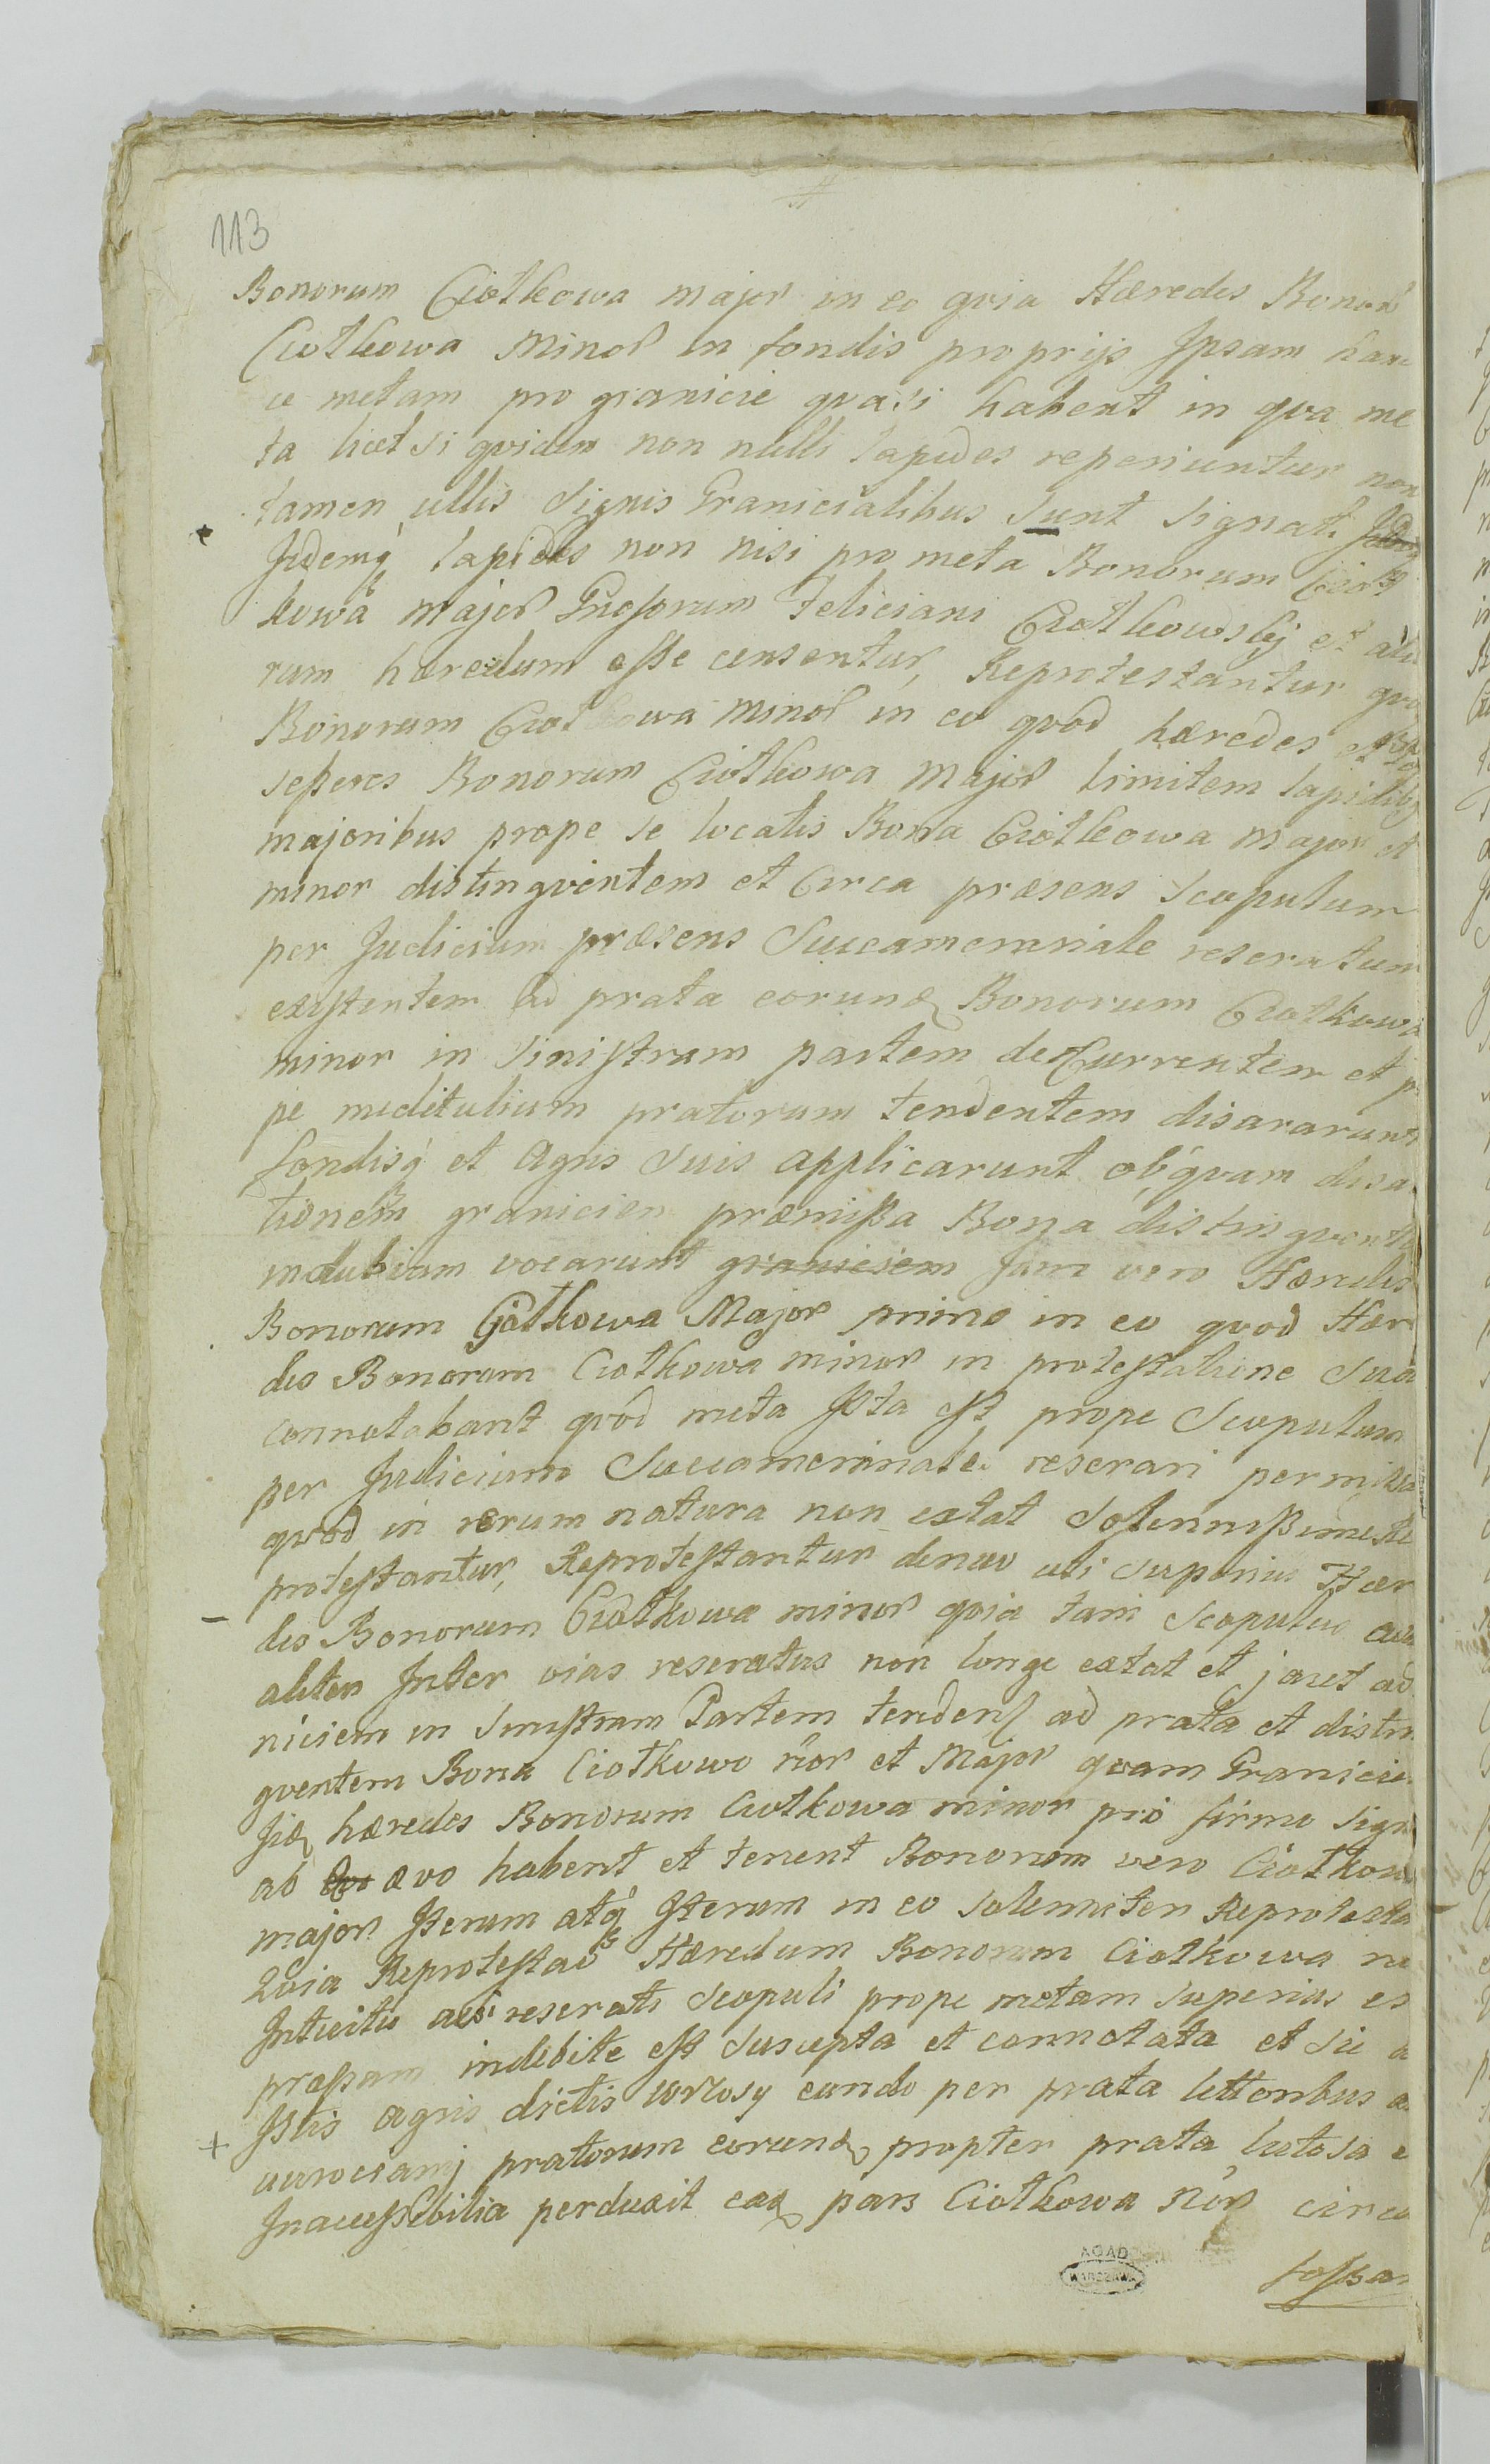 113
Bonorum Ciotkowa major in eo qvia Hæredes Bonor
Ciotkowa Minor in fondis proprijs Ipsam han
ce metam pro granicie qvasi habent in qva me
ta licet si qvidem non nulli lapides reperiuntur non
tamen ullis Signis Granicialibus Sunt Signati
Jidemq lapides non nisi pro meta Bonorum Ciot
kowa major Gnosorum Feliciani Ciotkowskj et alio
rum hæredum esse censentur, Reprotestantur qvo
Bonorum Ciotkowa minor in eo qvod hæredes et
sessores Bonorum Ciotkowa Major limitem lapidibq
majoribus prope se locatis Bona Ciotkowa major et
minor distingventem et Circa præsens Scopulum
per Judicium præsens Succamerariale reseratum
existentem ad prata eorund Bonorum Ciotkowa
minor in Sinistram partem deCurrentem et p
pe meditulium pratorum tendentem disararunt
fondisq et Agris Suis applicarunt ob qvam disa
tionem granicien præmissa Bona distingvent
indubiam vocarunt graniciem Jam vero Hæredes
Bonorum Ciotkowa Major primo in eo qvod Hær
des Bonorum Ciotkowa minor in protestatione Sua
connotabant qvod meta Ista est prope Scopulum
per Judicium Succamerariale reserari permissa
qvod in rerum natura non extat Solennissime Re
protestantur, Reprotestantur denuo uti Superius Hær
des Bonorum Ciotkowa minor qvia tam Scopulus
aliter Inter vias reseratus non longe extat et jacet ad
niciem in Sinistram Partem tendens ad prata et distin
gventem Bona Ciotkowo nor et Major qvam Granicie
Jid hæredes Bonorum Ciotkowa minor pro firmo Sign
ab Evo ævo habent et tenent Bonorum vero Ciotkow
major Iterum atq Iterum in eo Solenniter Reprotesta
Qvia Reprotestao Hæredum Bonorum Ciotkowa
Intuitu reserati Scopuli prope metam Superius ex
pressam indebite est Suscepta et connotata et Sic a
Istis agris dictis wrzosy eundo per prata
pratorum eorund propter prata lutosa e
Inaccessibilia perduxit ead pars Ciotkowa nor circa
AGAD
WARSZAWA
fossam